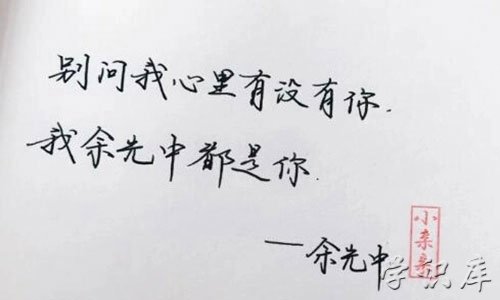 别问我心里有没有你.
我余光中都是你.
——余光中
小亲亲
学识库